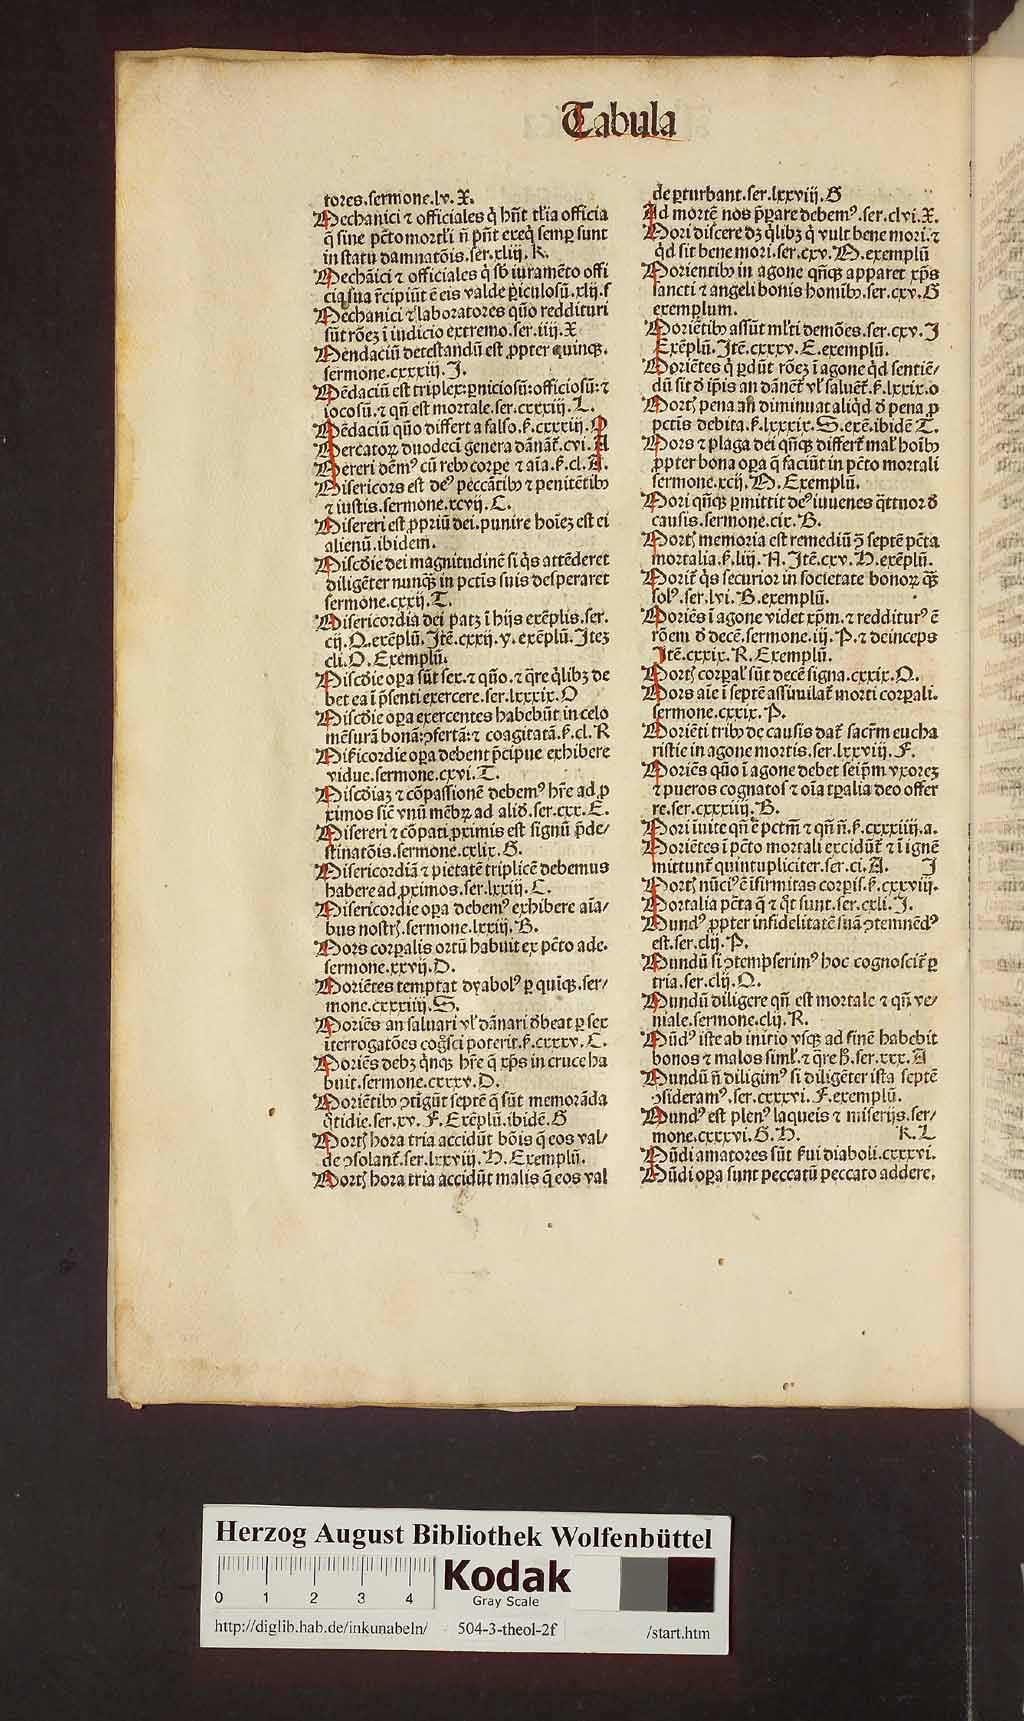 Tabula
tores.sermone.lv.X.
Mechanici ⁊ officiales q̇ hñt tl̃ia officia
q̃ sine pctõ mortl̃i ñ pñt exeq̇ semꝑ sunt
in statu damnatõis.ser.xliij.K.
Mechãici ⁊ officiales q̇ sb̃ iuramẽto offi
cia sua r̃cipiũt ẽ eis valde ꝑiculosũ.xlij.f
Mechanici ⁊ laboratores quõ reddituri
sũt rõeꝫ ĩ iudicio extremo.ser.iiij.X
Mendaciũ detestandũ est ꝓpter quinqꝫ.
sermone.cxxxiij.I.
Mẽdaciũ est triplex:ꝑniciosũ:officiosũ:⁊
iocosũ.⁊ qñ est mortale.ser.cxxxiij.L.
Mẽdaciũ quõ differt a falso.ẜ.cxxxiij.
Mercatoꝝ duodecĩ genera dãnãt᷑.cvi.A
Mereri dẽmꝰ cũ rebꝰ corpe ⁊ aĩa.ẜ.cl.A.
Misericors est deꝰ peccãtibꝰ ⁊ penitẽtibꝰ
⁊ iustis.sermone.xcvij.C.
Misereri est ꝓpriũ dei.punire hoĩeꝫ est ei
alienũ.ibidem.
Miscd̃ie dei magnitudinẽ si q̇s attẽderet
diligẽter nunqꝫ̃ in pctis̃ suis desperaret
sermone.cxxij.T.
Misericordia dei patꝫ ĩ hijs exẽplis.ser.
cij.Q.exẽplũ.Itẽ.cxxij.v.exẽplũ.Iteꝫ
cli.O.Exemplũ.
Miscd̃ie oꝑa sũt sex.⁊ quõ.⁊ q̃re q̇libꝫ de
bet ea ĩ p̃senti exercere.ser.lxxxix.O
Miscd̃ie oꝑa exercentes habebũt in celo
mẽsurã bonã:ꝯfertã:⁊ coagitatã.ẜ.cl.R
Miẜicordie oꝑa debent p̃cipue exhibere
vidue.sermone.cxvi.T.
Miscd̃iaꝫ ⁊ cõpassionẽ debemꝰ hr̃e ad ꝓ
ximos sic̃ vnũ mẽbꝝ ad aliđ.ser.cxx.E.
Misereri ⁊ cõpati ꝓximis est signũ p̃de⸗
stinatõis.sermone.cxlix.G.
Misericordiã ⁊ pietatẽ triplicẽ debemus
habere ad ꝓximos.ser.lxxiij.C.
Misericordie oꝑa debemꝰ exhibere aĩa⸗
bus nostrꝭ.sermone.lxxiij.B.
Mors corꝑalis ortũ habuit ex pctõ ade.
sermone.xxvij.D.
Moriẽtes temptat dyabolꝰ ꝑ quĩqꝫ.ser⸗
mone.cxxxiiij.S.
Moriẽs an saluari vl̃ dãnari đbeat ꝑ sex
ĩterrogatões cog̃sci poterit.ẜ.cxxxv.C.
Moriẽs debꝫ q̇nqꝫ hr̃e q̃ xp̃s in cruce ha
buit.sermone.cxxxv.D.
Moriẽtibꝰ ꝯtigũt septẽ q̃ sũt memorãda
q̃tidie.ser.xv.F.Exẽplũ.ibidẽ.G
Mortꝭ hora tria accidũt bõis q̃ eos val⸗
de ꝯsolant᷑.ser.lxxviij.H.Exemplũ.
Mortꝭ hora tria accidũt malis q̃ eos val
de ꝑturbant.ser.lxxviij.G
Ad mortẽ nos p̃ꝑare debemꝰ.ser.clvi.X.
Mori discere dꝫ q̇libꝫ q̇ vult bene mori.⁊
qđ sit bene mori.ser.cxv.M.exemplũ
Morientibꝰ in agone qñqꝫ apparet xp̃s
sancti ⁊ angeli bonis hominibꝰ.ser.cxv.G
exemplum.
Moriẽtibꝰ assũt ml̃ti demões.ser.cxv.I
Exẽplũ.Itẽ.cxxxv.E.exemplũ.
Moriẽtes q̇ ꝑdũt rõeꝫ ĩ agone qđ sentiẽ⸗
dũ sit đ ip̃is an dãnẽt᷑ vl̃ saluẽt᷑.ẜ.lxxix.o
Mortꝭ pena an diminuat aliqđ đ pena ꝓ
pctis̃ debita.ẜ.lxxxix.S.exẽ.ibidẽ T.
Mors ⁊ plaga dei qñqꝫ differt᷑ mal̃ hoĩbꝰ
ꝓpter bona oꝑa q̃ faciũt in pctõ mortali
sermone.xcij.M.Exemplũ.
Mori qñqꝫ ꝑmittit deꝰ iuuenes q̃ttuor đ
causis.sermone.cix.B.
Mortꝭ memoria est remediũ ꝯ̃ septẽ pctã
mortalia.ẜ.liij.A.Itẽ.cxv.H.exẽplũ.
Morit᷑ q̇s securior in societate bonoꝝ qꝫ̃
solꝰ.ser.lvi.B.exemplũ.
Moriẽs ĩ agone videt xp̃m.⁊ redditurꝰ ẽ
rõem đ decẽ.sermone.iij.P.⁊ deinceps
Itẽ.cxxix.R.Exemplũ.
Mortꝭ corꝑal̃ sũt decẽ signa.cxxix.Q.
Mors aĩe ĩ septẽ assĩuilat᷑ morti corꝑali.
sermone.cxxix.P.
Moriẽti tribꝰ de causis dat᷑ sacr̃m eucha
ristie in agone mortis.ser.lxxviij.F.
Moriẽs quõ ĩ agone debet seip̃m vxoreꝫ
⁊ pueros cognatos ⁊ oĩa tꝑalia deo offer
re.ser.cxxxiiij.B.
Mori ĩuite qñ ẽ pctm̃ ⁊ qñ ñ.ẜ.cxxxiiij.a.
Moriẽtes ĩ pctõ mortali excidũt᷑ ⁊ ĩ ignẽ
mittunt᷑ quintupliciter.ser.ci.A. I
Mortꝭ nũciꝰ ẽ ĩfirmitas corpis̃.ẜ.cxxviij.
Mortalia pctã q̃ ⁊ q̊t sunt.ser.cxli.I.
Mundꝰ ꝓpter infidelitatẽ suã ꝯtemnẽdꝰ
est.ser.clij.P.
Mundũ si ꝯtempserimꝰ hoc cognoscit᷑ ꝑ
tria.ser.clij.Q.
Mundũ diligere qñ est mortale ⁊ qñ ve⸗
niale.sermone.clij.R.
Mũdꝰ iste ab initio vsqꝫ ad finẽ habebit
bonos ⁊ malos siml̃.⁊ q̃re ß.ser.xxx.A
Mundũ ñ diligimꝰ si diligẽter ista septẽ
ꝯsideramꝰ.ser.cxxxvi.F.exemplũ.
Mundꝰ est plenꝰ laqueis ⁊ miserijs.ser⸗
mone.cxxxvi.G.H. K.L
Mũdi amatores sũt ẜui diaboli.cxxxvi.
Mũdi oꝑa sunt peccatũ peccato addere.
Herzog August Bibliothek Wolfenbüttel
0 1 2 3 4
Kodak
Gray Scale
http://diglib.hab.de/inkunabeln/ 504-3-theol-2f /start.htm